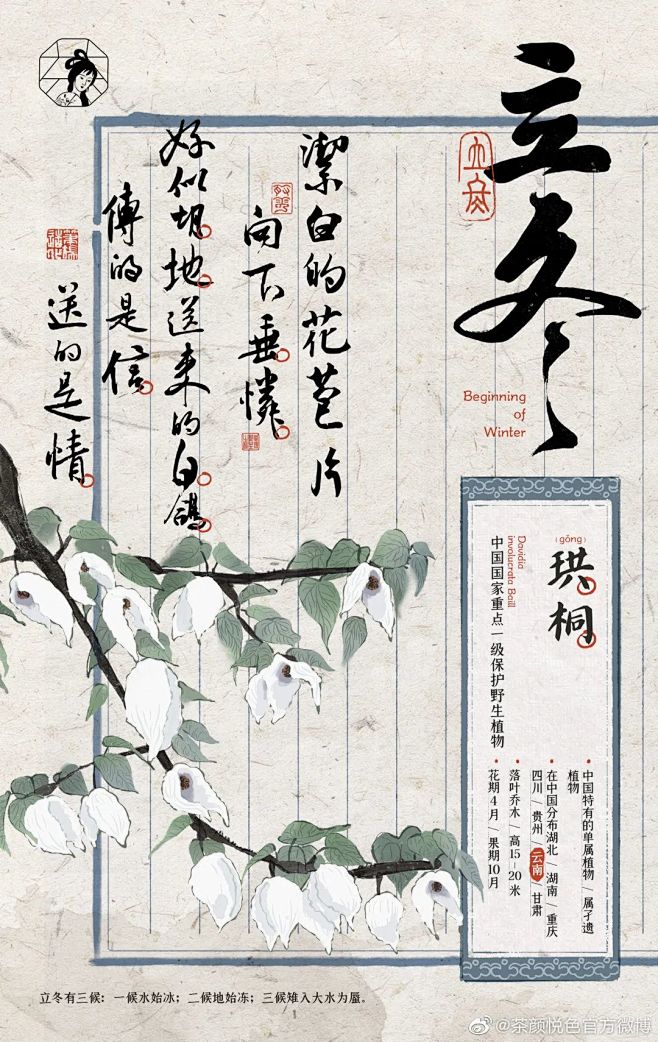 立冬
立冬
Beginning
of
Winter
潔白的花苞片
向下垂憐
好似胡地送来的白鴿
傳的是信
送的是情
(gǒng)
珙桐
Davidia
involucrata Baill
中国国家重点一级保护野生植物
中国特有的单属植物/属孑遗
植物
在中国分布湖北/湖南/重庆
四川/贵州/云南/甘肃
落叶乔木/高15-20米
花期4月/果期10月
立冬有三候:一候水始冰;二候地始冻;三候雉入大水为蜃。
@茶颜悦色官方微博